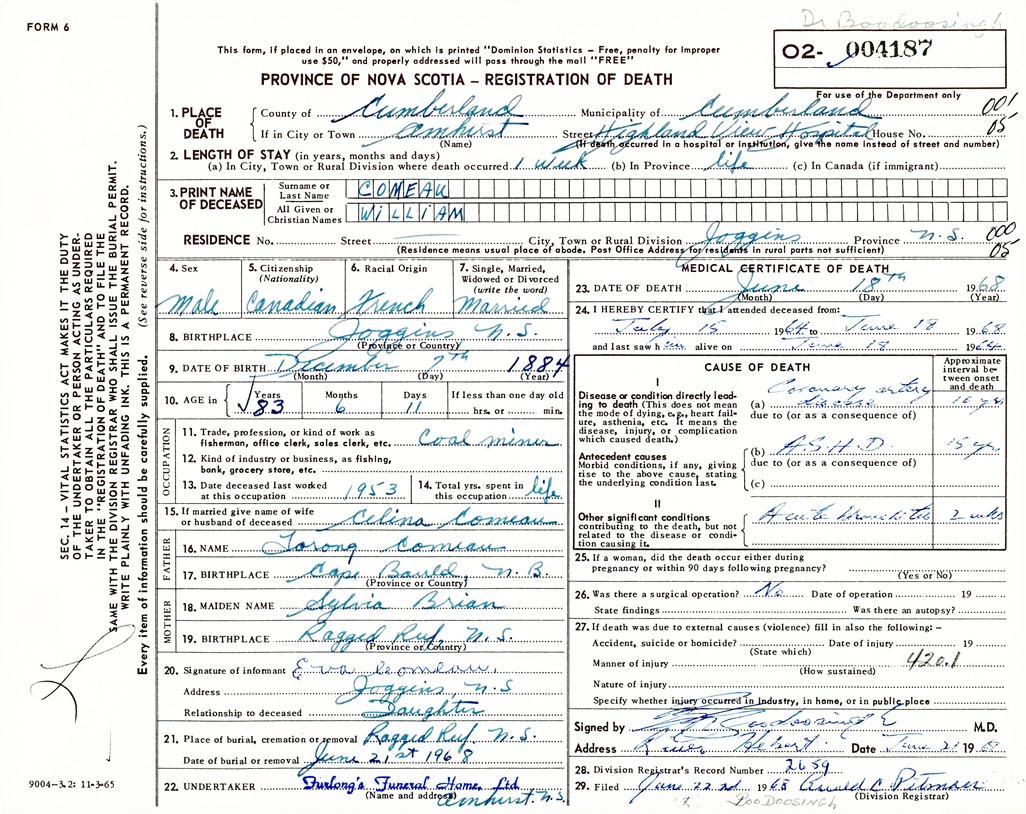 Dr Boodoosingh
FORM 6
This form, if placed in an envelope, on which is printed "Dominion Statistics – Free, penalty for improper
use $50," and properly addressed will pass through the mail "FREE"
O2- 004187
PROVINCE OF NOVA SCOTIA – REGISTRATION OF DEATH
For use of the Department only
1. PLACE OF DEATH
County of Cumberland Municipality of Cumberland 001
If in City or Town Amhurst Street Highland View Hospital House No. 05
(Name) (If death occurred in a hospital or institution, give the name instead of street and number)
2. LENGTH OF STAY (in years, months and days)
(a) In City, Town or Rural Division where death occurred 1 Week (b) In Province life (c) In Canada (if immigrant)
3. PRINT NAME OF DECEASED
Surname or Last Name COMEAU
All Given or Christian Names WILLIAM
RESIDENCE No. Street City, Town or Rural Division Joggins Province N.S. 000
(Residence means usual place of abode. Post Office Address for residents in rural parts not sufficient) 05
4. Sex Male
5. Citizenship (Nationality) Canadian
6. Racial Origin French
7. Single, Married, Widowed or Divorced (write the word) Married
8. BIRTHPLACE Joggins N.S.
(Province or Country)
9. DATE OF BIRTH December 7th 1884
(Month) (Day) (Year)
10. AGE in Years 83 Months 6 Days 11 If less than one day old hrs. or min.
OCCUPATION
11. Trade, profession, or kind of work as fisherman, office clerk, sales clerk, etc. Coal miner
12. Kind of industry or business, as fishing, bank, grocery store, etc.
13. Date deceased last worked at this occupation 1953
14. Total yrs. spent in this occupation life
15. If married give name of wife or husband of deceased Celina Comeau
FATHER
16. NAME Comeau
17. BIRTHPLACE Cape Bauld, N.B.
(Province or Country)
MOTHER
18. MAIDEN NAME Sylvia Brian
19. BIRTHPLACE Ragged Ruf, N.S.
(Province or Country)
20. Signature of informant Eva Comeau
Address Joggins, N.S
Relationship to deceased Daughter
21. Place of burial, cremation or removal Ragged Ruf, N.S.
Date of burial or removal June 21st 1968
22. UNDERTAKER Furlong's Funeral Home, Ltd.
(Name and address) Amhurst. N.S.
MEDICAL CERTIFICATE OF DEATH
23. DATE OF DEATH June 18th 1968
(Month) (Day) (Year)
24. I HEREBY CERTIFY that I attended deceased from:
July 15 1964 to June 18 1968
and last saw him alive on June 18 1964
CAUSE OF DEATH
Approximate interval between onset and death
I
Disease or condition directly leading to death (This does not mean the mode of dying, e.g., heart failure, asthenia, etc. It means the disease, injury, or complication which caused death.)
(a) Coronary artery disease 10 yrs
due to (or as a consequence of)
Antecedent causes
Morbid conditions, if any, giving rise to the above cause, stating the underlying condition last.
(b) A.S.H.D. 15 yr.
due to (or as a consequence of)
(c)
II
Other significant conditions contributing to the death, but not related to the disease or condition causing it.
Acute bronchitis 2 wks
25. If a woman, did the death occur either during pregnancy or within 90 days following pregnancy?
(Yes or No)
26. Was there a surgical operation? No Date of operation 19
State findings Was there an autopsy?
27. If death was due to external causes (violence) fill in also the following: –
Accident, suicide or homicide? Date of injury 19
(State which)
Manner of injury 420.1
(How sustained)
Nature of injury
Specify whether injury occurred in Industry, in home, or in public place
Signed by Boodoosingh M.D.
Address River Hebert Date June 21 1968
28. Division Registrar's Record Number 2659
29. Filed June 22nd 1968 Arnold C Pitman
(Division Registrar)
BOODOOSINGH
SEC. 14 – VITAL STATISTICS ACT MAKES IT THE DUTY
OF THE UNDERTAKER OR PERSON ACTING AS UNDER-
TAKER TO OBTAIN ALL THE PARTICULARS REQUIRED
IN THE "REGISTRATION OF DEATH" AND TO FILE THE
SAME WITH THE DIVISION REGISTRAR WHO SHALL ISSUE THE BURIAL PERMIT.
WRITE PLAINLY WITH UNFADING INK. THIS IS A PERMANENT RECORD.
Every item of information should be carefully supplied. (See reverse side for instructions.)
9004-3.2: 11-3-65